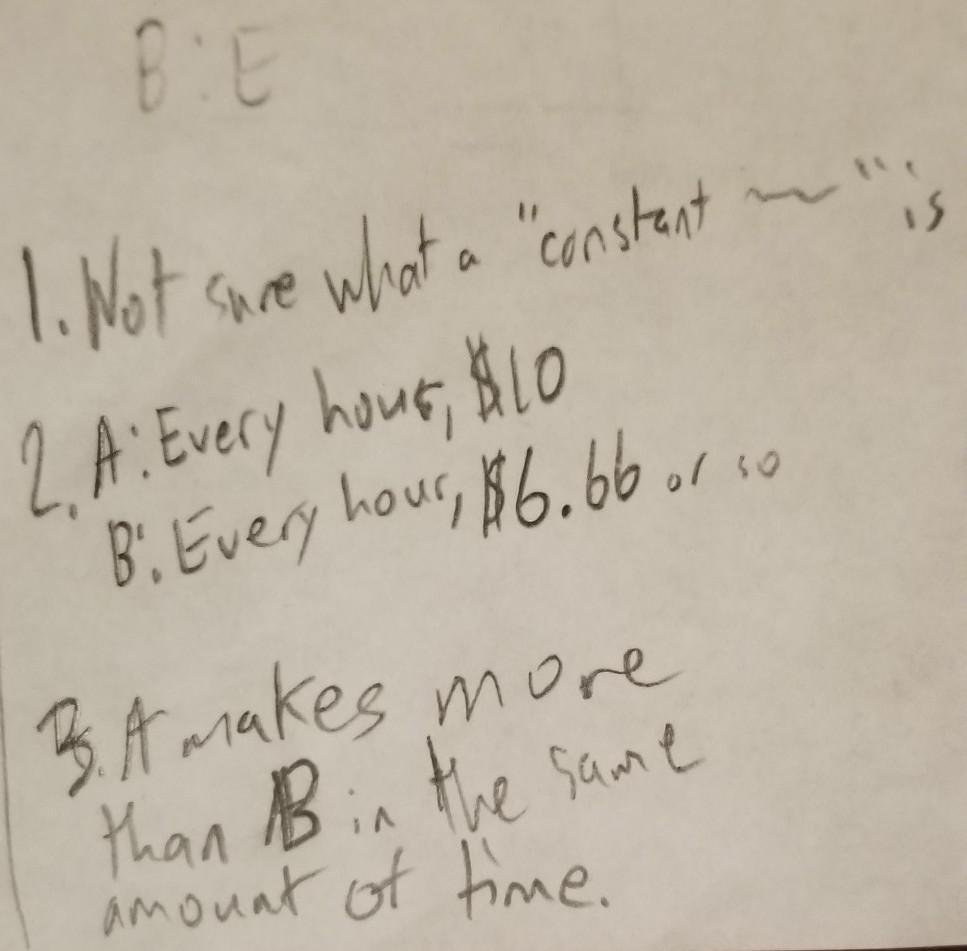 B:E
1. Not sure what a "constant ~" is
2. A: Every hour, $10
B: Every hour, $6.66 or so
3. A makes more
than B in the same
amount of time.